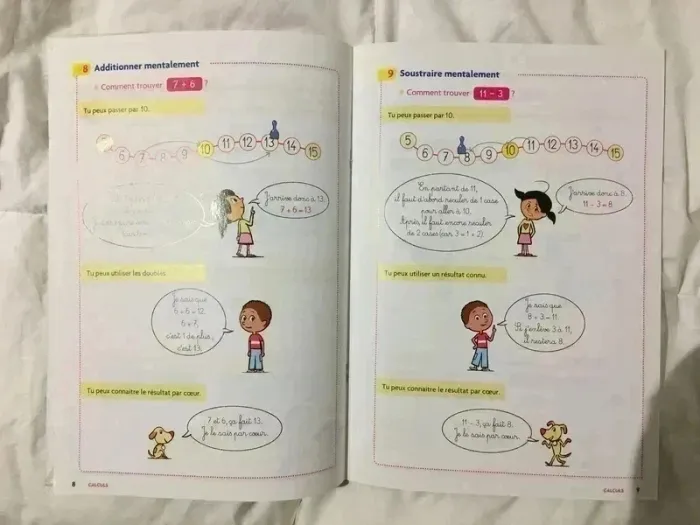 8 Additionner mentalement
Comment trouver 7 + 6 ?
Tu peux passer par 10.
6 7 9 10 11 12 13 14 15
J'arrive donc à 13.
7 + 6 = 13
Tu peux utiliser les doubles.
Je sais que
6 + 6 = 12.
6 + 7,
c'est 1 de plus,
c'est 13.
Tu peux connaitre le résultat par cœur.
7 et 6, ça fait 13.
Je le sais par cœur.
8 CALCULS
9 Soustraire mentalement
Comment trouver 11 – 3 ?
Tu peux passer par 10.
5 6 7 8 9 10 11 12 13 14 15
En partant de 11,
il faut d'abord reculer de 1 case
pour aller à 10.
Après, il faut encore reculer
de 2 cases (car 3 = 1 + 2).
J'arrive donc à 8.
11 – 3 = 8
Tu peux utiliser un résultat connu.
Je sais que
8 + 3 = 11.
Si j'enlève 3 à 11,
il restera 8.
Tu peux connaitre le résultat par cœur.
11 – 3, ça fait 8.
Je le sais par cœur.
CALCULS 9